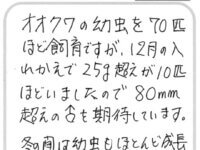 オオクワの幼虫を70匹
ほど飼育ですが、12月の入
れかえで25g超えが10匹
ほどいましたので80mm
超えの♂も期待しています。
冬の間は幼虫もほとんど成長